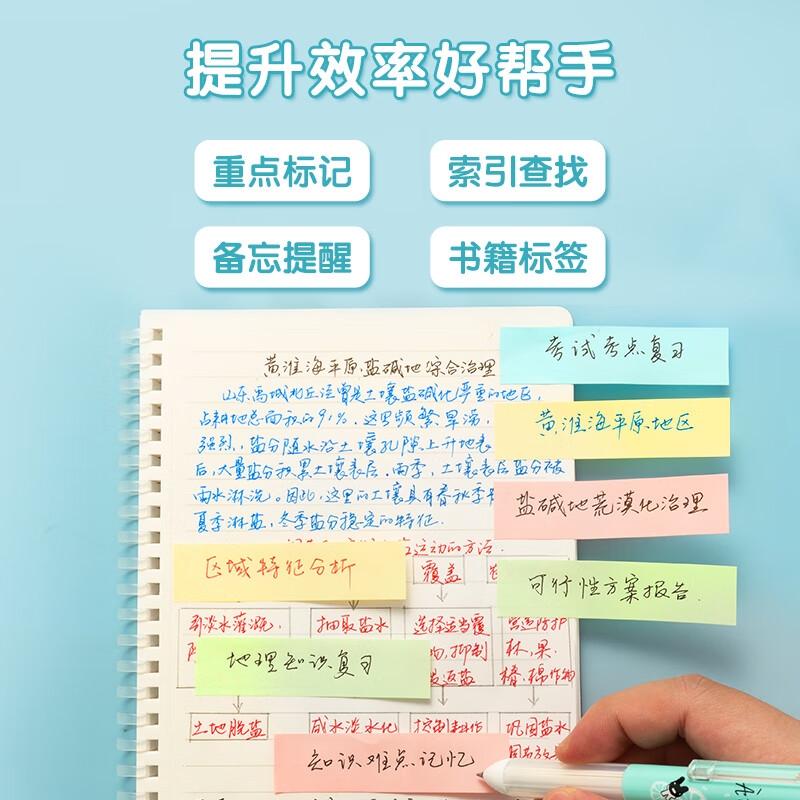 提升效率好帮手
重点标记
索引查找
备忘提醒
书籍标签
考试考点复习
黄淮海平原地区
盐碱地荒漠化治理
可行性方案报告
黄淮海平原盐碱地综合治理
山东禹城北丘洼曾是土壤盐碱化严重的地区,
占耕地总面积的91%. 这里频繁旱涝,
强烈, 盐分随水沿土壤孔隙上升地表
后, 大量盐分积累土壤表层. 雨季, 土壤表层盐分被
雨水淋洗。因此, 这里的土壤具有春秋季
夏季淋盐, 冬季盐分稳定的特征.
运动的方法.
区域特征分析
覆盖
引淡水灌溉,
抽取盐水
选择适当覆
营造防护
抑制
林, 果
返盐
棉作物
地理知识复习
土地脱盐
咸水淡水化
控制耕作
巩固盐水
知识难点记忆